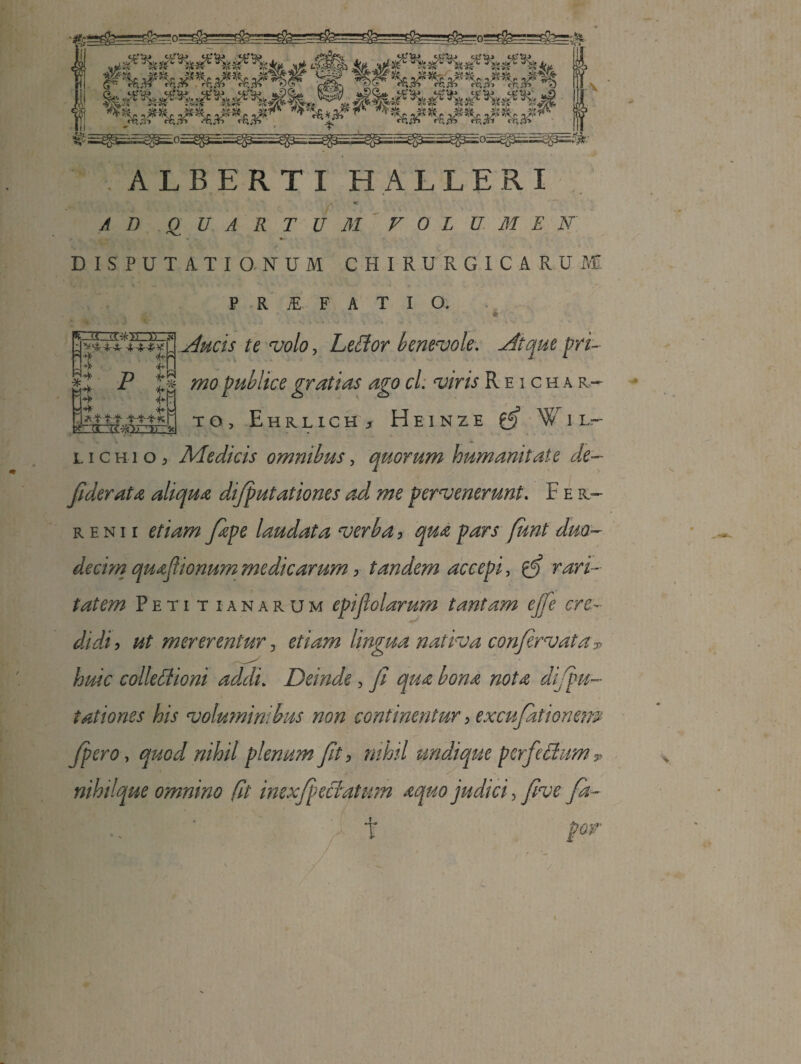 ALBERTI HALLERI
AD QUARTUM VOLUMEN
DISPUTATIONUM CHIRURGICARUM
PRÆFATIO.
PAucis te volo, Lector benevole. Atque pri-
mo publice gratias ago cl. viris REICHAR-
TO, EHRLICH, HEINZE & WIL-
LICHIO, Medicis omnibus, quorum humanitate de-
ſiderata aliquæ diſputationes ad me pervenerunt. FER-
RENII etiam ſæpe laudata verba, quæ pars ſunt duo-
decim quæſtionum medicarum, tandem accepi, & rari-
tatem PETITIANARUM epiſtolarum tantam eſſe cre-
didi, ut mererentur, etiam lingua nativa conſervata,
huic collectioni addi. Deinde, ſi quæ bonæ notæ diſpu-
tationes his voluminibus non continentur, excuſationem
ſpero, quod nihil plenum ſit, nihil undique perfectum,
nihilque omnino ſit inexſpectatum æquo judici, ſive ſa-
† por